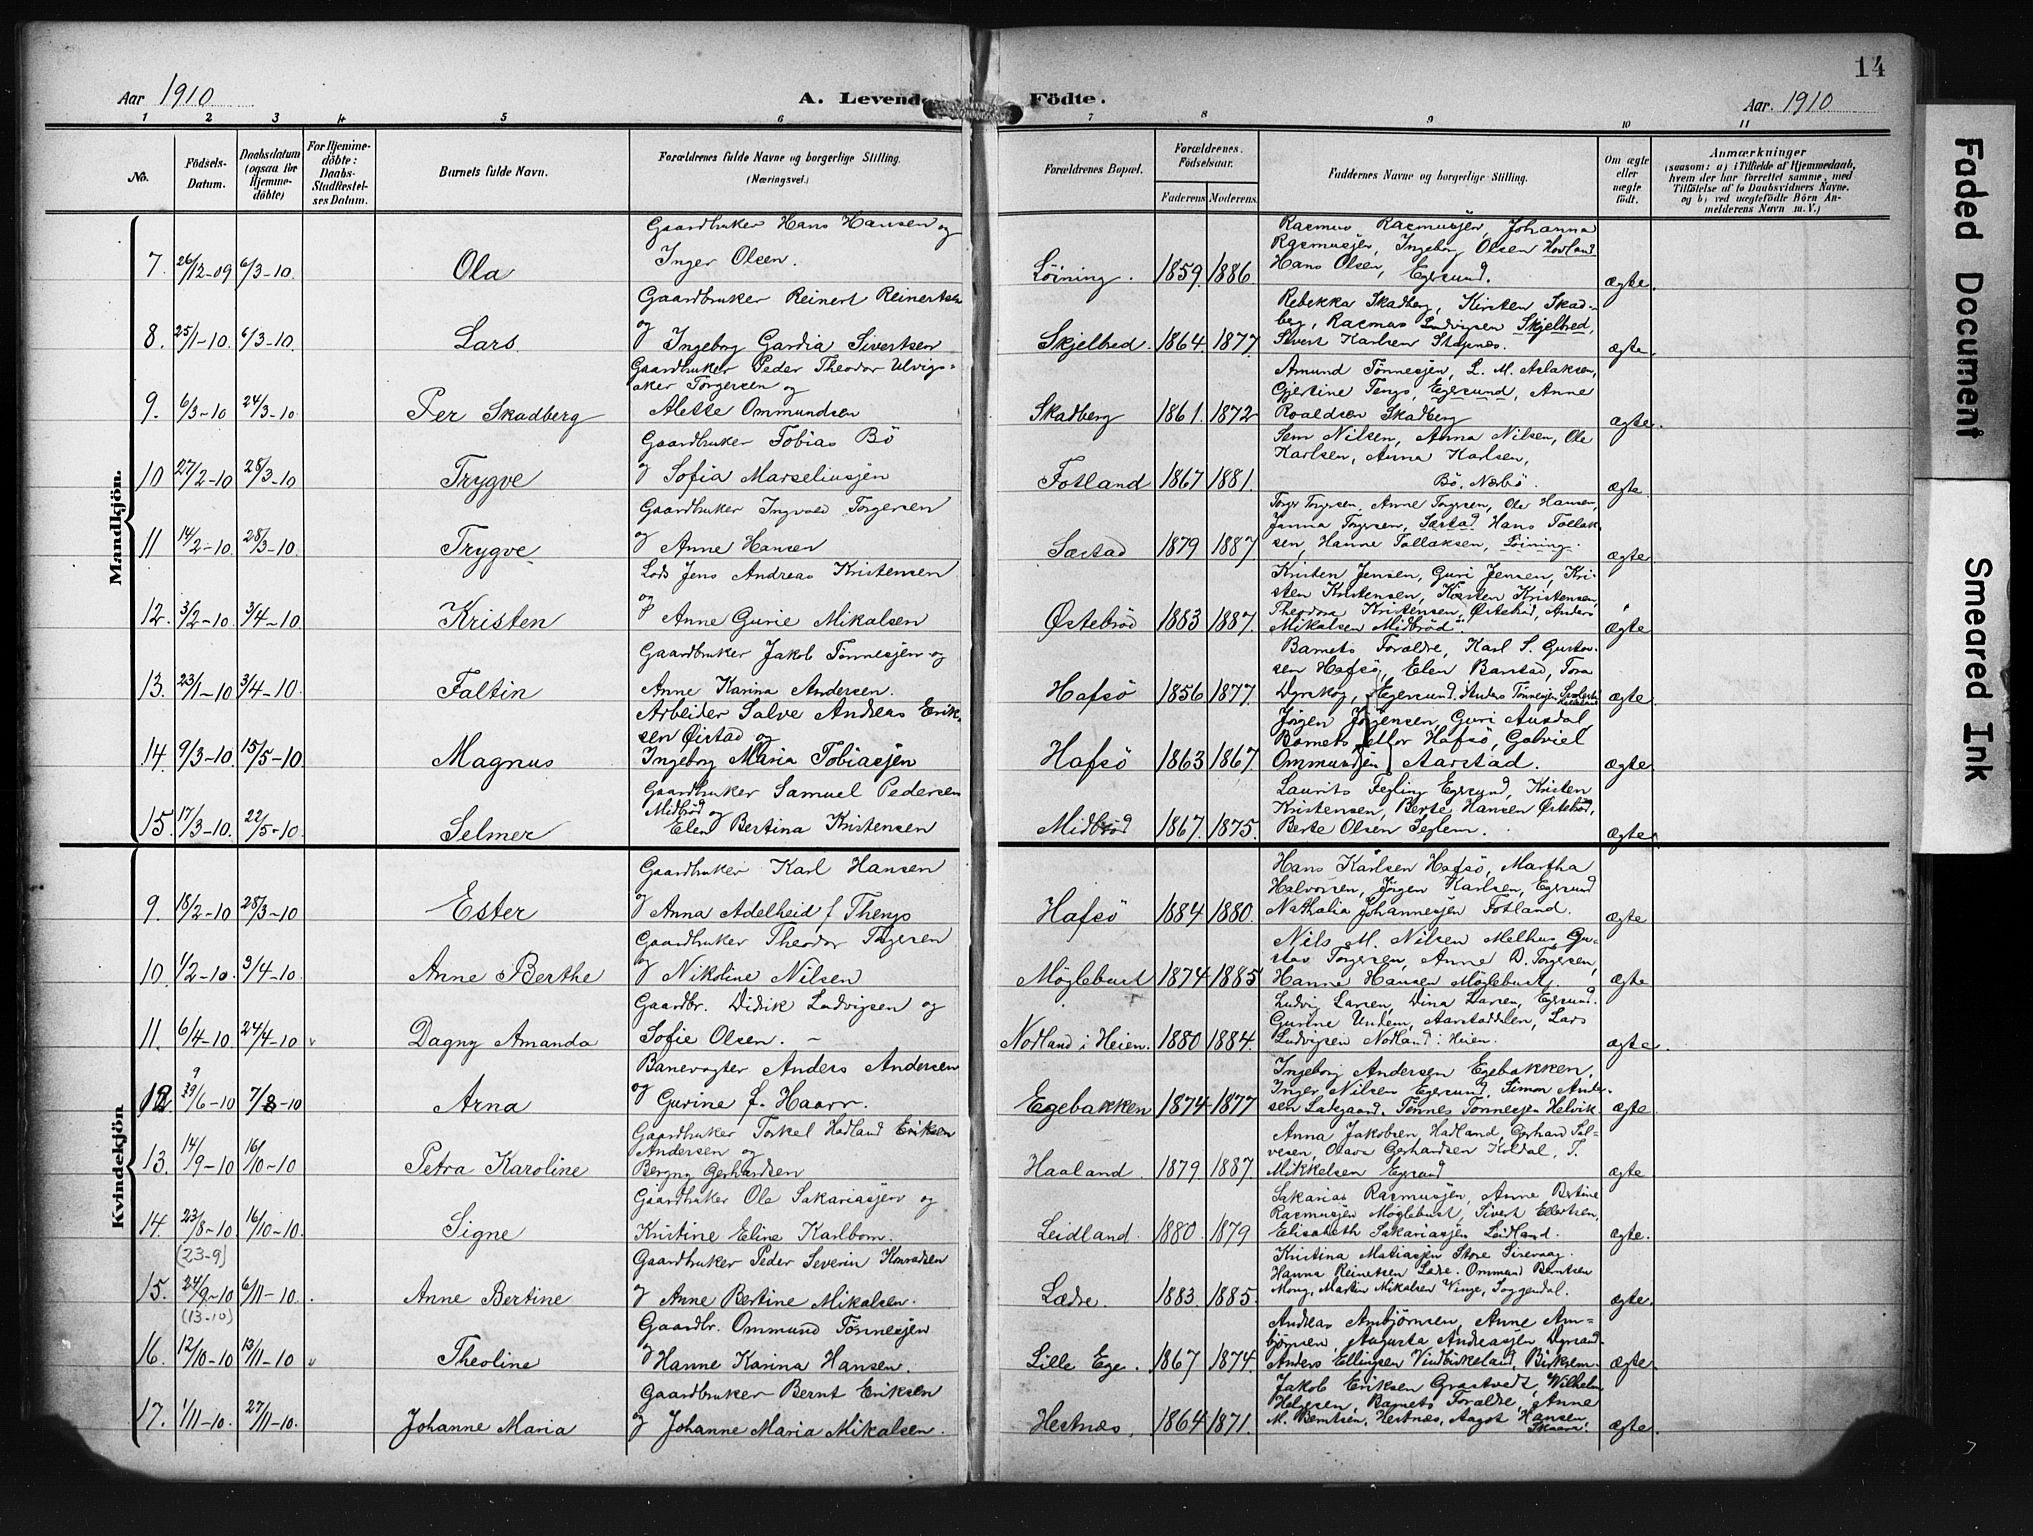 14
Aar 1910
A. Levende Födte.
Aar. 1910
1 2 3 4 5 6 7 8 9 10 11
No.
Födsels-Datum.
Daabsdatum (ogsaa for Hjemme-döbte)
For Hjemme-döbte: Daabs-Stadfæstel-ses Datum.
Barnets fulde Navn.
Forældrenes fulde Navne og borgerlige Stilling.
(Næringsvei.)
Forældrenes Bopæl.
Forældrenes Födselsaar.
Faderens Moderens.
Faddernes Navne og borgerlige Stilling.
Om ægte eller uægte födt.
Anmærkninger
(saasom: a) i Tilfælde af Hjemmedaab,
hvem der har forrettet samme, med
Tilföielse af to Daabsvidners Navne.
og b) ved uægtefödte Börn An-
melderens Navn m. V.)
Mandkjön.
Gaardbruker Hans Hansen og
Inger Olsen.
7 26/12-09 6/3-10. Ola
Löining. 1859. 1886.
Rasmus Rasmussen, Johanna
Rasmussen, Ingeborg Olsen Hovland
Hans Olsen, Egersund.
ægte.
Gaardbruker Reinert Reinertsen
og Ingeborg Gardia Sivertsen
8. 25/1-10. 6/3-10. Lars
Skjelbred. 1864. 1877.
Rebekka Skadberg, Kirsten Skad-
berg, Rasmus Ludvigsen Skjelbred,
Sivert Karlsen Stapnes.
ægte.
Gaardbruker Peder Theodor Ulvigs-
aker Torgersen og
Alette Ommundsen
9. 6/3-10 24/3-10 Per Skadberg
Skadberg 1861. 1872
Amund Tönnesjen, L. M. Aslaksen,
Gjertine Tengs, Egersund, Anne
Roaldsen Skadberg
ægte.
Gaardbruker Tobias Bö
og Sofia Marseliusjen
10 27/2-10 28/3-10 Trygve
Fotland 1867 1881.
Sem Nilsen, Anna Nilsen, Ole
Karlsen, Anna Karlsen,
Bö, Næbö.
ægte
Gaardbruker Ingvald Torgersen
og Anne Hansen
11 14/2-10 28/3-10. Trygve
Sæstad 1879 1887.
Torger Torgersen, Anne Torgersen, Ole Hansen,
Janna Torgersen, Sæstad, Hans Tollak
sen, Hanne Tollaksen, Löining.
ægte
Lods Jens Andreas Kristensen
og Anne Gurie Mikalsen
12. 3/2-10. 3/4-10. Kristen
Østebröd 1883 1887.
Kristen Jensen, Guri Jensen, Kri-
sten Kristensen, Karsten Kristensen,
Theodora Kristensen, Østebröd, Anders
Mikalsen Midbröd.
ægte
Gaardbruker Jakob Tönnesjen og
Anne Karina Andersen.
13. 23/1-10 3/4-10. Faltin
Hafsö 1856 1877.
Barnets Forældre, Karl S. Gustav-
sen Hafsö, Elen Barstad, Tora
Dyrskog, Egersund. Anders Tönnesjen
ægte
Arbeider Salve Andreas Erik-
sen Øistad og
Ingeborg Maria Tobiasjen
14. 9/3-10. 15/5-10 Magnus
Hafsö 1863 1867.
Jörgen Jörgensen, Guri Ausdal
Barnets Mor Hafsö, Gabriel
Ommundsen Aarstad.
ægte.
Gaardbruker Samuel Pedersen
Midbröd og
Elen Bertina Kristensen
15. 17/3-10. 22/5-10 Selmer
Midbröd 1867. 1875.
Laurits Fegling Egersund, Kristen
Kristensen, Berte Hansen Østebröd,
Berte Olsen Seglem.
ægte.
Kvindekjön
Gaardbruker Karl Hansen
og Anna Adelheid f. Thengs
9. 18/2-10 28/3-10 Ester
Hafsö 1884 1880.
Hans Karlsen Hafsö, Martha
Halvorsen, Jörgen Karlsen, Egersund
Nathalia Johannesjen Fotland.
ægte
Gaardbruker Theodor Torgersen
og Nikoline Nilsen
10. 1/2-10. 3/4-10. Anne Berthe
Möglebust 1874 1885
Nils M. Nilsen Melhus, Gu-
stav Torgersen, Anne D. Torgersen,
Hanne Hansen Möglebust.
ægte
Gaardbr. Didrik Ludvigsen og
Sofie Olsen.
11. 6/4-10 24/4-10 v Dagny Amanda
Nodland i Heien. 1880 1884.
Ludvig Larsen, Dina Larsen, Egersund.
Gurine Undem, Aarstaddalen, Lars
Ludvigsen Nodland i Heien.
ægte.
Banevogter Anders Andersen
og Gurine f. Haarr.
12 29/6-10 7/8-10 Arna
Egebakken 1874 1877
Ingeborg Andersen Egebakken,
Inger Nilsen Egersund, Simon Ander-
sen Ladegaard. Tönnes Tönnesjen Helvik.
ægte
Gaardbruker Torkel Hadland Eriksen
Andersen og
Bergny Gerhardsen
13. 14/9-10 16/10-10 Petra Karoline
Haaland. 1879. 1887.
Anna Jakobsen, Hadland, Gerhard Sal-
vesen, Olava Gerhardsen Koldal, T.
Mikkelsen Egersund
ægte
Gaardbruker Ole Sakariasjen og
Kristine Eline Karlbom.
14. 23/8-10. 16/10-10. Signe
(23-9)
Leidland. 1880. 1879
Sakarias Rasmusjen, Anne Bertine
Rasmusjen Möglebust, Sivert Ellertsen,
Elisabeth Sakariasjen Leidland.
ægte.
Gaardbruker Peder Severin Konradsen
og Anne Bertine Mikalsen.
15. 24/9-10 6/11-10. Anne Bertine
(13-10)
Lædre. 1883. 1885.
Kristina Matiasjen Store Sirevaag.
Hanna Reinertsen Lædre. Ommund Berntsen
Mong, Martin Mikalsen Vinge, Soggendal.
ægte.
Gaardbr. Ommund Tönnesjen
og Hanne Karina Hansen.
16. 12/10-10 13/11-10 v Theoline
Lille Ege. 1867 1874.
Andreas Ambjörnsen, Anne Am-
björnsen, Augusta Andreasjen Dyrsand.
Anders Ellingsen Vindbirkeland, Birkrem.
ægte.
Gaardbruker Bernt Eriksen
og Johanne Maria Mikalsen.
17. 1/11-10. 27/11-10. Johanne Maria
Hestnæs. 1864 1871.
Jakob Eriksen Grastvedt, Wilhelm
Helgesen, Barnets Forældre, Anne
M. Berntsen, Hestnæs, Aagot Hansen,
Skaara.
ægte.
Faded Document
Smeared Ink